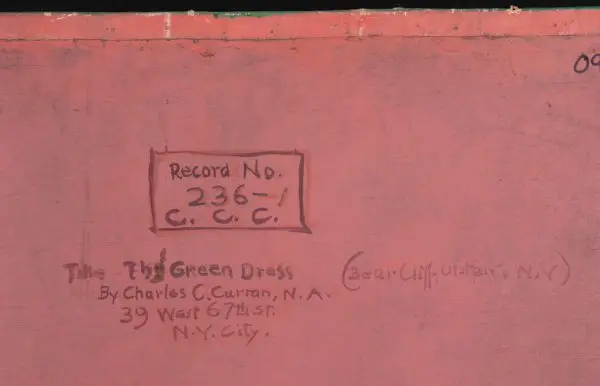 09
Record No.
236-1
C. C. C.
Title The Green Dress (Bear Cliff, N.Y)
By Charles C. Curran, N. A.
39 West 67th St.
N.Y. City.